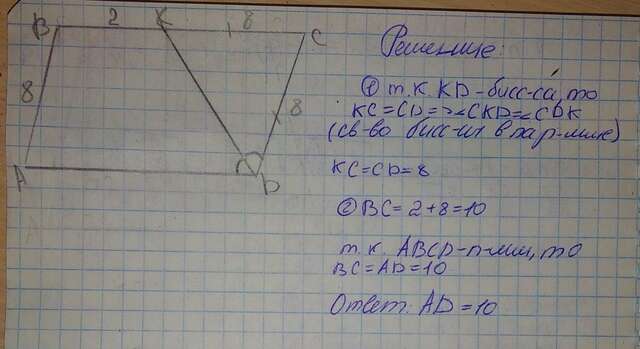 B 2 K 8 C
8
8
A D
Решение:
① т.к. KD-бисс-са, то
KC=CD=>∠CKD=∠CDK
(св-во бисс-ы в пар-мме)
KC=CD=8
② BC=2+8=10
т.к. ABCD-п-мм, то
BC=AD=10
Ответ: AD=10